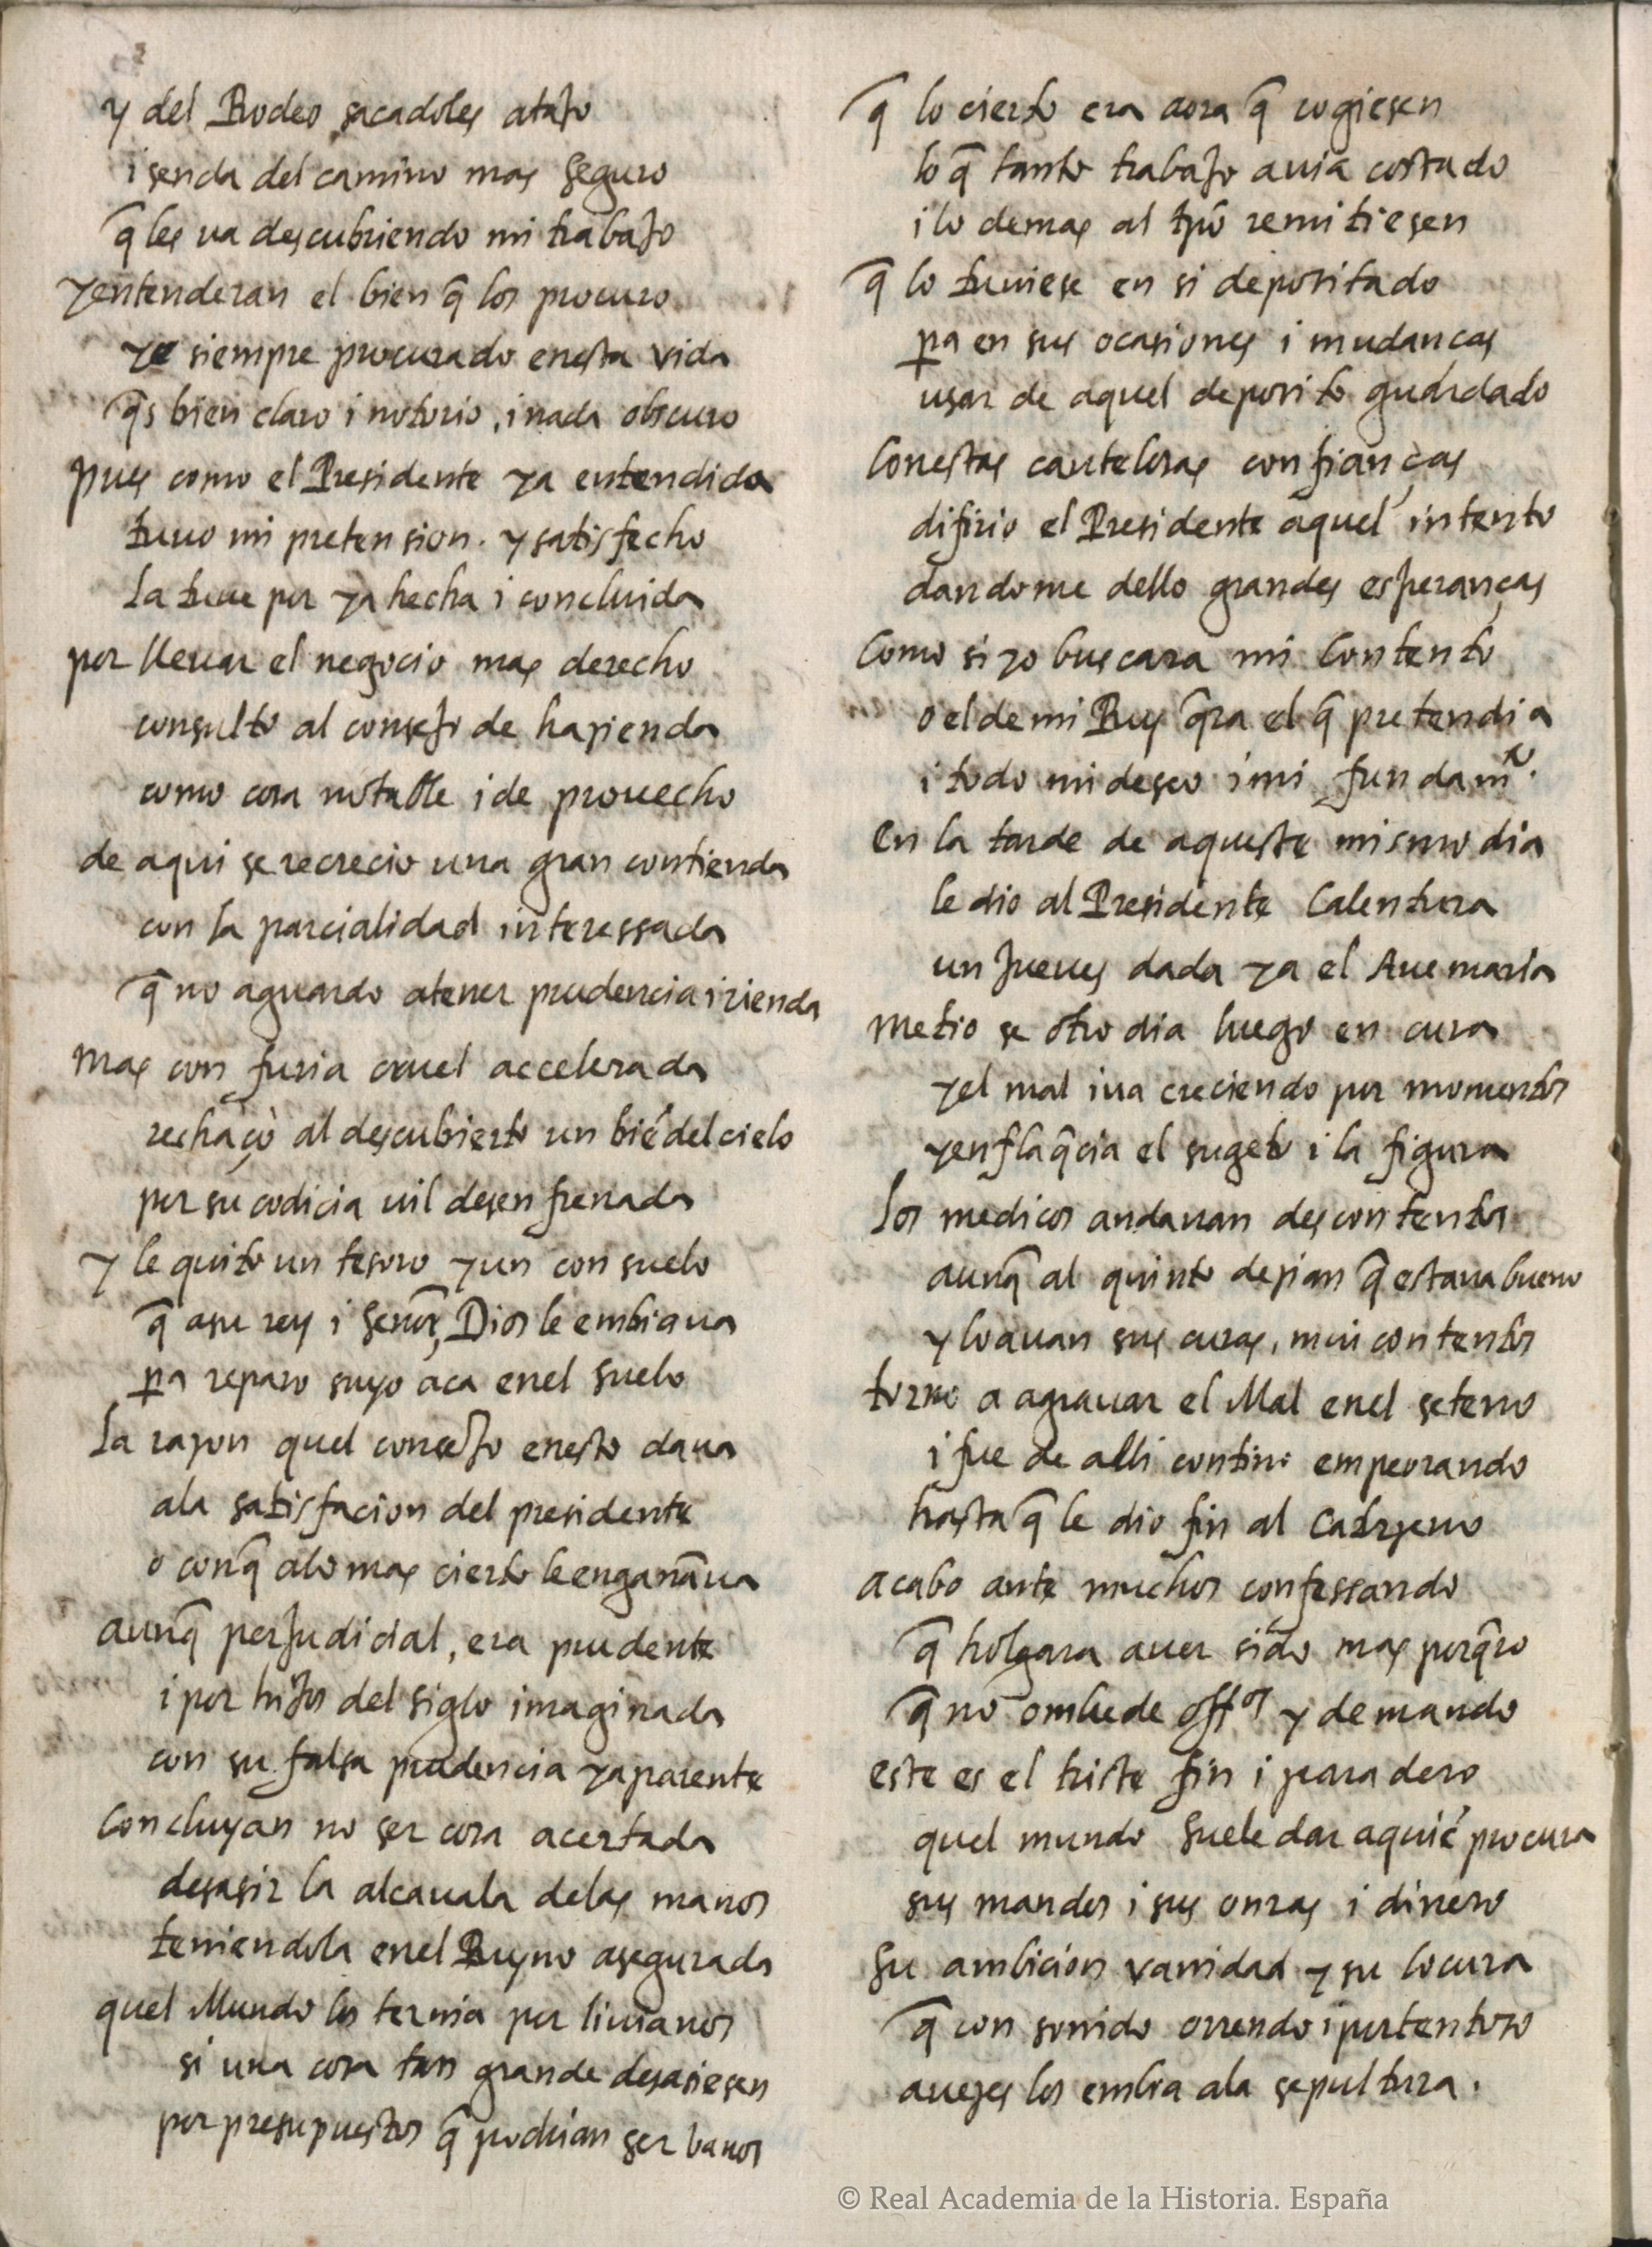 y del Rodeo sacadoles atajo
i senda del camino mas seguro
q̃ les va descubriendo mi trabajo
y entenderan el bien q̃ los procuro
ye siempre procurado enesta vida
q̃s bien claro i notorio, i nada obscuro
pues como el Presidente ya entendida
tuuo mi pretension. y satisfecho
la tuue por ya hecha i concluida
por lleuar el negocio mas derecho
consulto al consejo de hazienda
como cosa notable i de prouecho
de aqui se recrecio una gran contienda
con la parcialidad interessada
q̃ no aguardo atener prudencia i rienda
mas con furia cruel accelerada
rechaço al descubierto un biẽ del cielo
por su codicia uil desenfrenada
y le quito un tesoro y un consuelo
q̃ asu rey i señor, Dios le embiaua
pa reparo suyo aca enel suelo
La razon quel consejo enesto daua
ala satisfacion del presidente
o conq̃ alo mas cierto le engañaua
aunq̃ perjudicial, era prudente
i por hijos del siglo imaginada
con su falsa prudencia y aparente
Concluyan no ser cosa acertada
desasir la alcauala delas manos
teniendola enel Reyno asegurada
quel Mundo los ternia por liuianos
si una cosa tan grande desasiesen
por presupuestos q̃ podrian ser banos
q̃ lo cierto era aora q̃ cogiesen
lo q̃ tanto trabajo auia costado
i lo demas al tp̃o remitiesen
q̃ lo tuuiese en si depositado
pa en sus ocasiones i mudancas
usar de aquel deposito guardado
Conestas cautelosas confianças
difirio el Presidente aquel intento
dandome dello grandes esperanças
Como si yo buscara mi Contento
o el de mi Rey q̃ra el q̃ pretendia
i todo mi deseo i mi fundamto.
En la tarde de aqueste mismo dia
le dio al Presidente Calentura
un Jueues dada ya el Auemaria
Metio se otro dia luego en cura
y el mal iua creciendo por momentos
y enflaq̃cia el sugeto i la figura
Los medicos andauan descontentos
aunq̃ al quinto dezian q̃ estaua bueno
y loauan sus curas, mui contentos
torno a agrauar el Mal enel seteno
i fue de alli contino empeorando
hasta q̃ le dio fin al Catorzeno
acabo ante muchos confessando
q̃ holgara auer sido mas porq̃ro
q̃ no ombre de offos y de mando
este es el triste fin i paradero
quel mundo suele dar aquiẽ procura
sus mandos i sus onras i dinero
Su ambicion vanidad y su locura
q̃ con sonido orrendo i portentoso
auezes los embia ala sepultura.
© Real Academia de la Historia. España